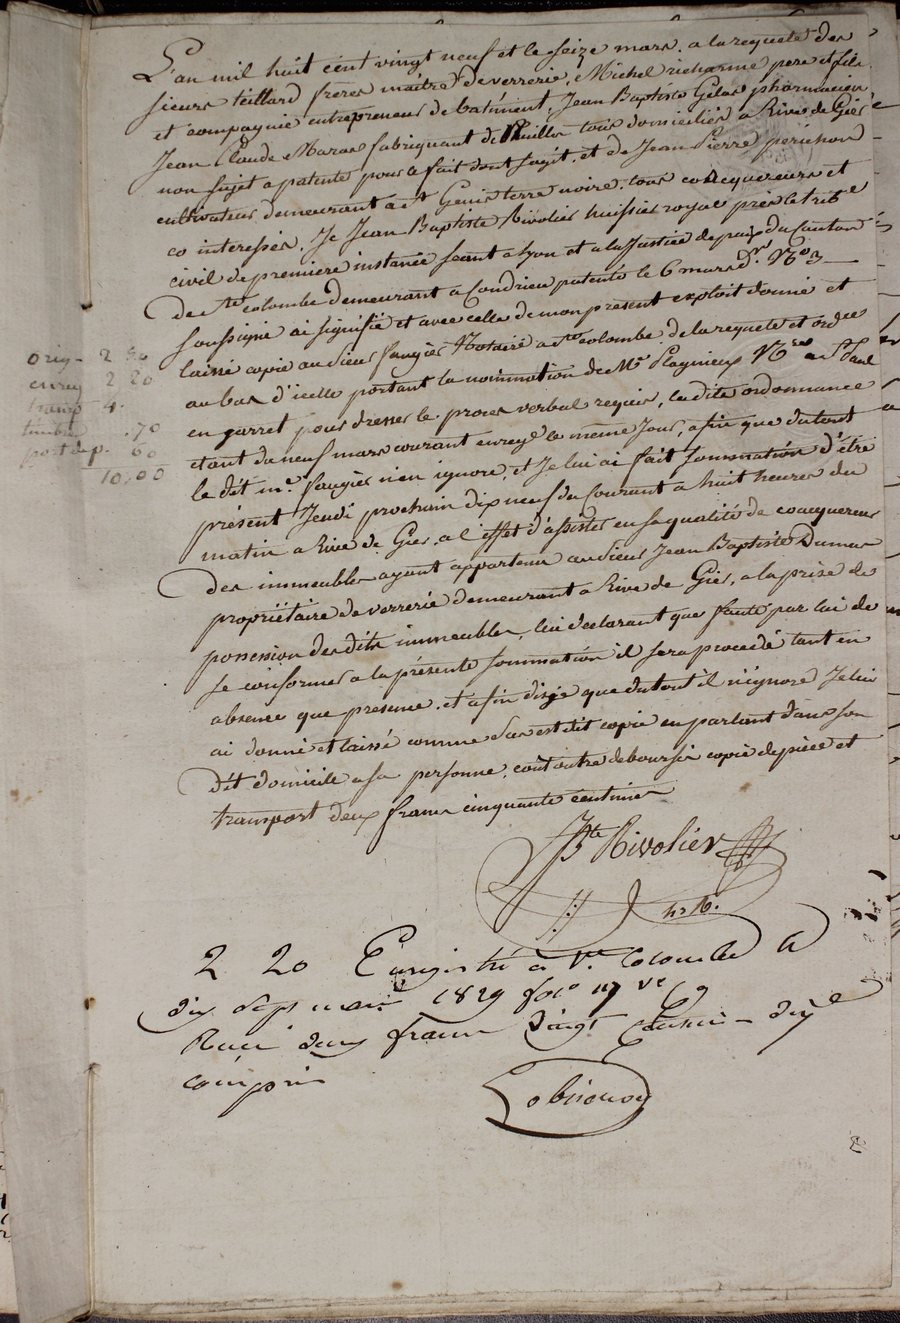 L'an mil huit cent vingt neuf et le seize mars. a la requete des
sieurs teillard freres maitre de verrerie, Michel richarme pere et fils
et compagnie entrepreneurs de batiment, Jean Baptiste Gilas pharmacien
Jean Claude Maras fabriquant de tous domiciliés a Rive de Gier
non sujet a patente pour le fait dont s'agit, et de Jean Pierre perichon
cultivateur demeurant a St Genis terre noire. tous coacquereurs et
co interessés. Je Jean Baptiste Rivolier huissier royal près le tribe
civil de premiere instance seant a Lyon et a la Justice de paix du Canton
de Ste colombe demeurant a Condrieu patenté le 6 mars dr. No 3
soussigné ai signifié et avec celle de mon present exploit donné et
laissé copie au sieur faugier Notaire a Ste colombe. de la requete et ordce
au bas d'icelle portant la nomination de Me Plagnieux Nre a St Paul
en jarret pour dresser le proces verbal requis, la dite ordonnance
etant du neuf mars courant enregé le même Jour, afin que du tout
le dit me. faugier n'en ignore, et Je lui ai fait sommation d'être
présent Jeudi prochain dix neuf du Courant a huit heures du
matin a Rive de Gier, a l'effet d'assister en sa qualité de coacquereur
des immeubles ayant appartenu au sieur Jean Baptiste Dumas
propriétaire de verrerie demeurant a Rive de Gier, a la prise de
possession des dits immeubles, lui declarant que faute par lui de
se conformer a la présente sommation il sera procedé tant en
absence que presence. et afin disje que du tout il n'ignore Je lui
ai donné et laissé comme dessus est dit copie en parlant dans son
dit domicile a sa personne, coût outre deboursés copie de pièce et
transport deux francs cinquante centimes
orig - 2 50
enreg 2 20
transp 4.
timbre .70
port de p. 60
10,00
JBte Rivolier
hr R.
2 20 Enregistré à Ste Colombe le
dix sept mars 1829 fo 117 Vo C 9
Recu deux francs Vingt Centimes dixe
compris